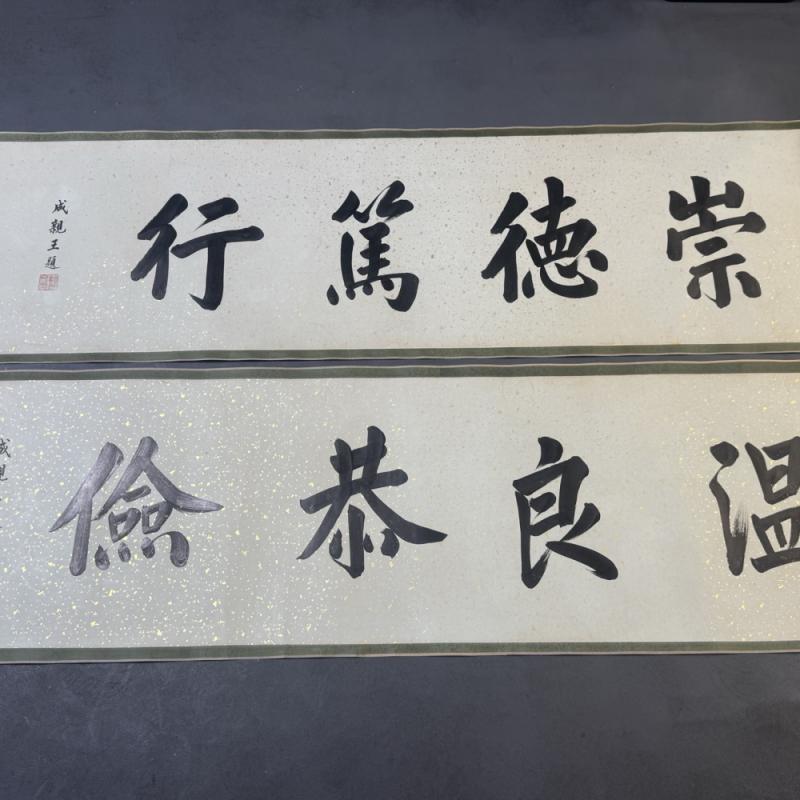 崇德篤行
成親王題
溫良恭儉
成親